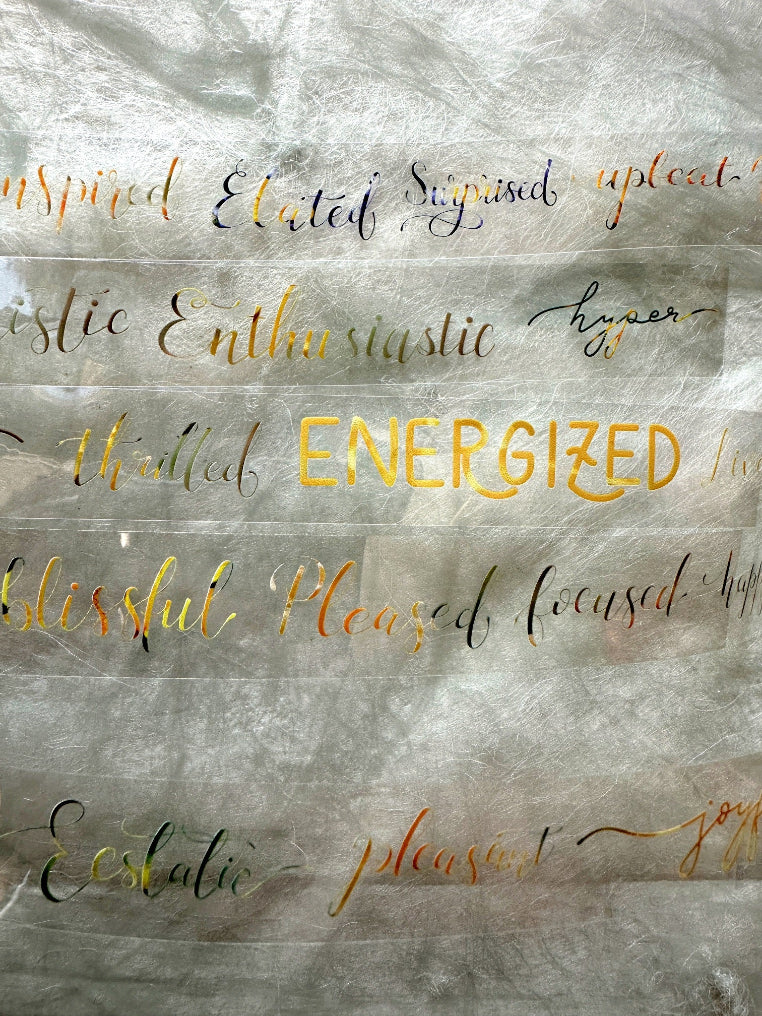 nspired Elated Surprised upbeat
istic Enthusiastic hyper
thrilled ENERGIZED Live
blissful Pleased focused happ
Ecstatic pleasant joyf